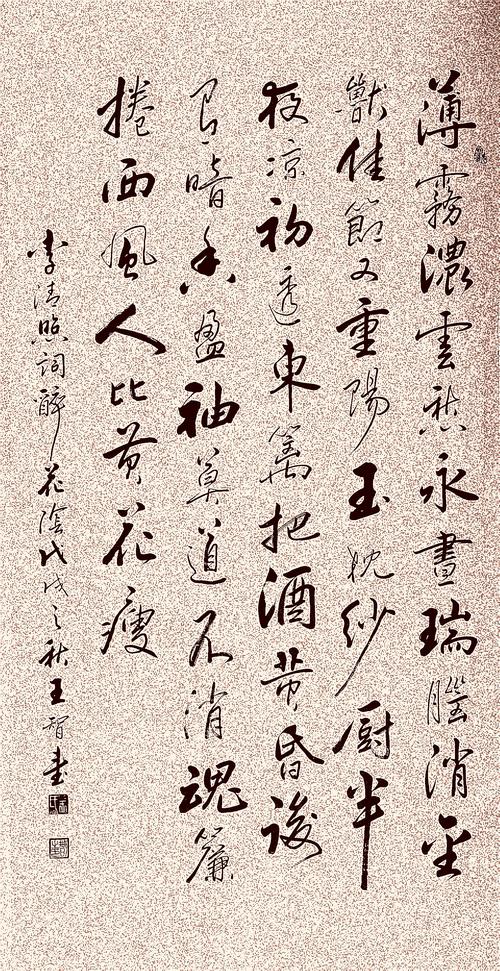 薄霧濃雲愁永晝瑞腦消金
獸佳節又重陽玉枕紗厨半
夜涼初透東籬把酒黄昏後
有暗香盈袖莫道不消魂簾
捲西風人比黄花瘦
李清照詞醉花陰戊戌之秋王智書